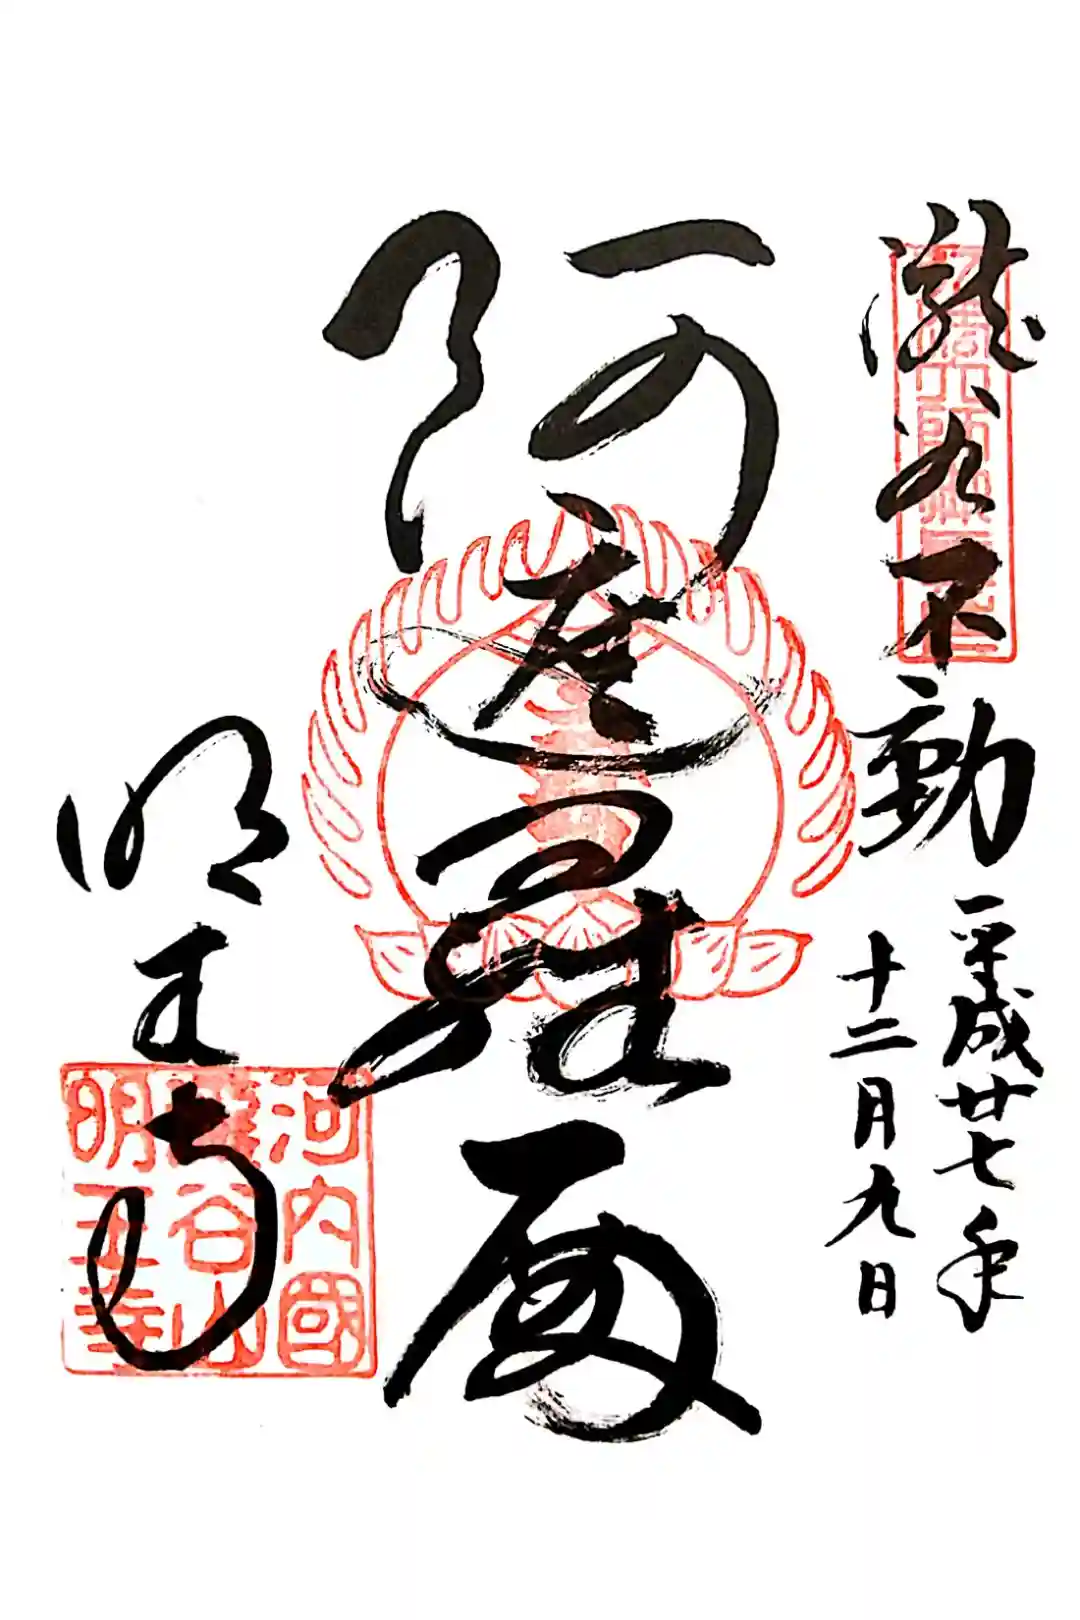 瀧谷不動
平成廿七年
十二月九日
阿遮羅
明王寺
河内國
瀧谷山
明王寺